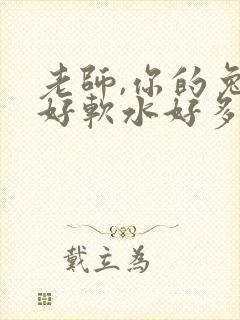 老師,你的兔
好軟水好多
戴立為